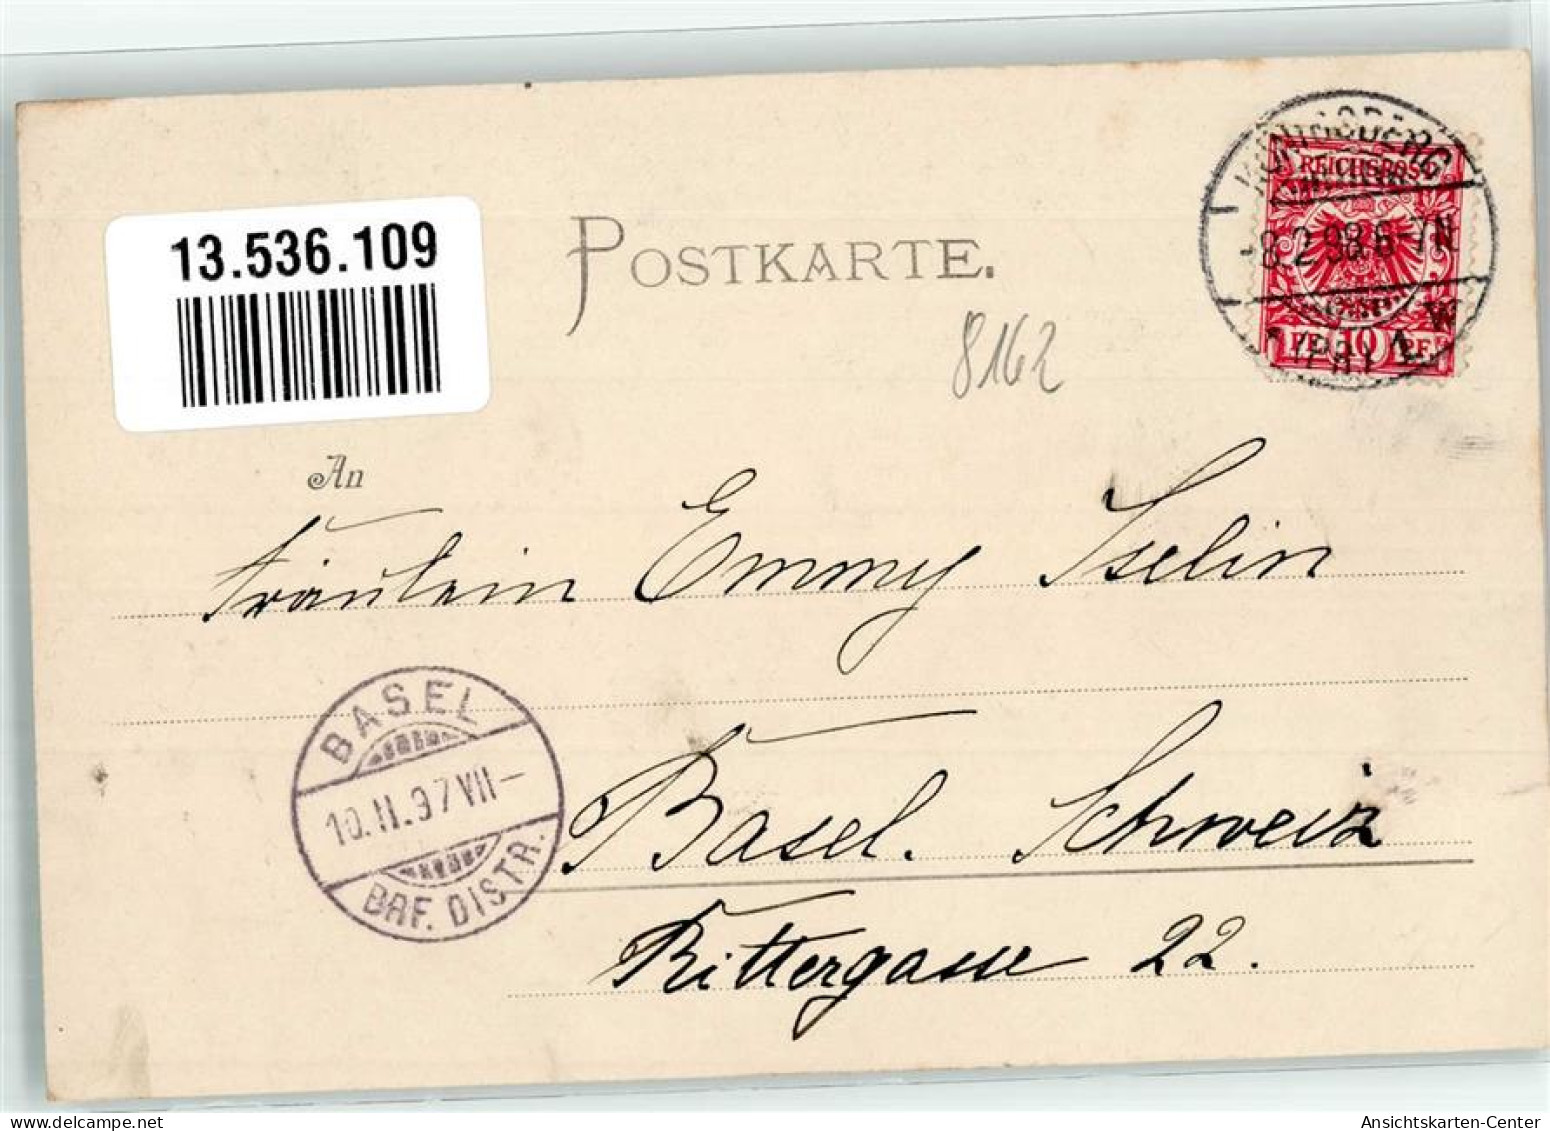 13.536.109
POSTKARTE.
8162
KÖNIGSBERG
REICHSPOST
-8.2.98.6-7N
(PR.) 1. W
PF. 10 PF.
An
Fräulein Emmy Iselin
BASEL
10.II.97.VII-
BRF. DISTR.
Basel. Schweiz
Rittergasse 22.
Ansichtskarten-Center